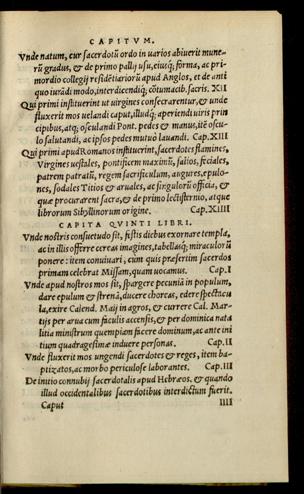 CAPITVM.
Vnde natum, cur sacerdotũ ordo in uarios abiuerit mune-
rũ gradus, & de primo pallij usu, eiusq́; forma, ac pri-
mordio collegij residẽtiariorũ apud Anglos, et de anti
quo iurãdi modo, interdicendiq́; cõtumacib. sacris. XII
Qui primi instituerint ut uirgines consecrarentur, & unde
fluxerit mos uelandi caput, illudq́; aperiendi uiris prin
cipibus, atq; osculandi Pont. pedes & manus, itẽ oscu
lo salutandi, ac ipsos pedes mutuò lauandi. Cap. XIII
Qui primi apud Romanos instituerint, sacerdotes flamines,
Virgines uestales, pontificem maximũ, salios, feciales,
patrem patratũ, regem sacrificulum, augures, epulo-
nes, sodales Titios & aruales, ac singulorũ officia, &
quæ procurarent sacra, & de primo lectisternio, atque
librorum Sibyllinorum origine. Cap. XIIII
CAPITA QVINTI LIBRI.
Vnde nostris consuetudo sit, festis diebus exornare templa,
ac in illis offerre cereas imagines, tabellasq́; miraculorũ
ponere: item conuiuari, cum quis præsertim sacerdos
primam celebrat Missam, quam uocamus. Cap. I
Vnde apud nostros mos sit, spargere pecuniã in populum,
dare epulum & strenã, ducere choreas, edere spectacu
la, exire Calend. Maij in agros, & currere Cal. Mar-
tijs per arua cum faculis accensis, & per dominica nata
litia ministrum quempiam facere dominum, ac ante ini
tium quadragesimæ induere personas. Cap. II
Vnde fluxerit mos ungendi sacerdotes & reges, item ba-
ptizatos, ac morbo periculose laborantes. Cap. III
De initio connubij sacerdotalis apud Hebræos, & quando
illud occidentalibus sacerdotibus interdictum fuerit.
Caput IIII